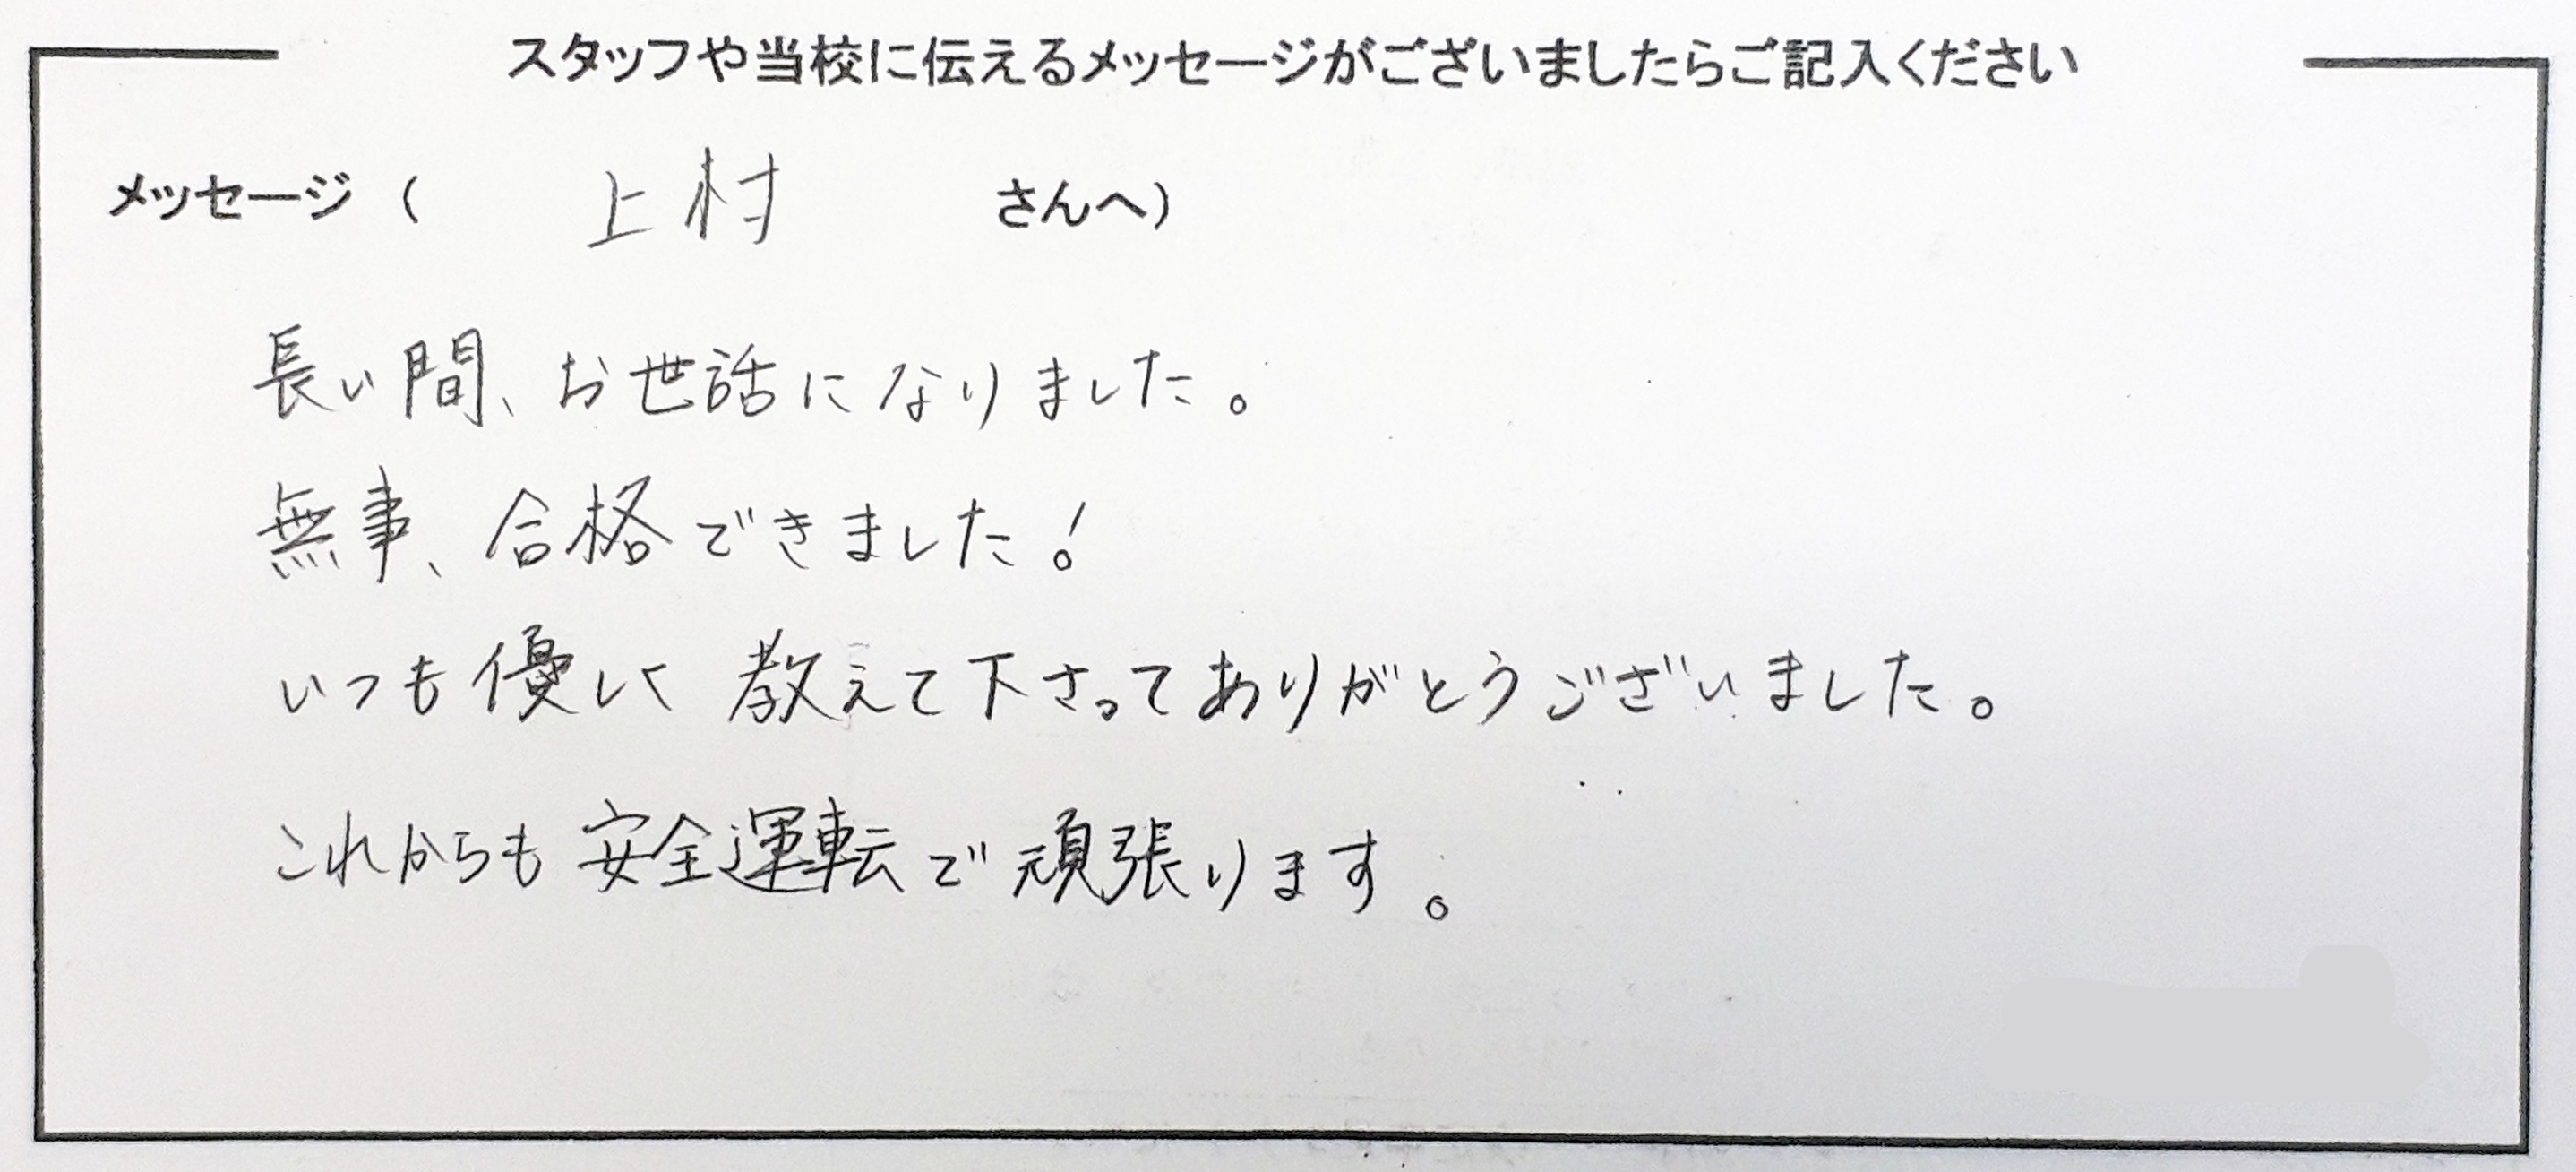 スタッフや当校に伝えるメッセージがございましたらご記入ください
メッセージ（ 上村 さんへ）
長い間、お世話になりました。
無事、合格できました！
いつも優しく教えて下さってありがとうございました。
これからも安全運転で頑張ります。